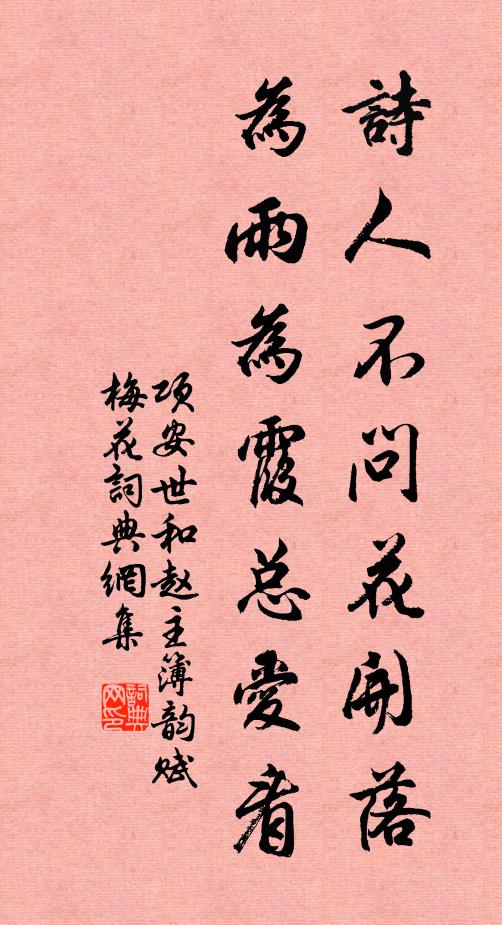 詩人不問花開落
為雨為霞总愛看
项安世和赵主簿韵赋
梅花詞典網集
詞典
网印